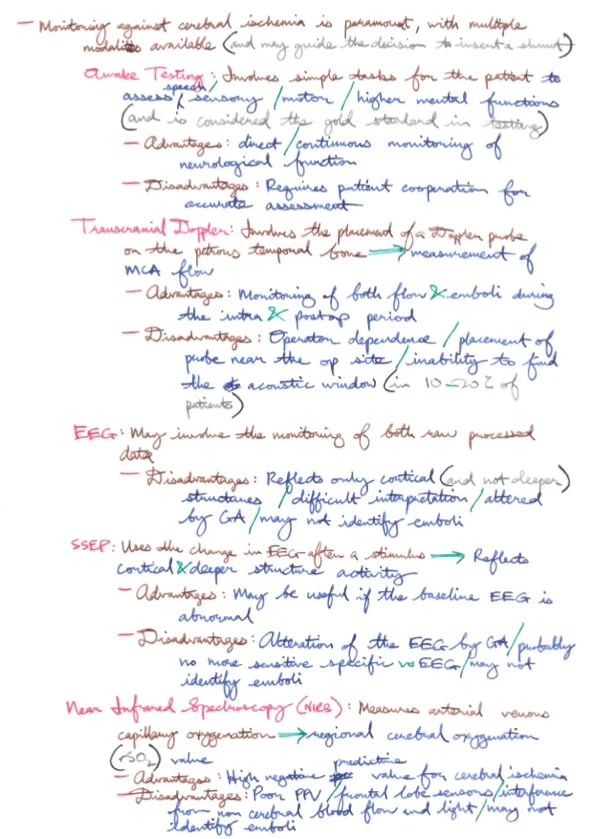 — Monitoring against cerebral ischemia is paramount, with multiple
modalities available (and may guide the decision to insert a shunt)
Awake Testing: Involves simple tasks for the patient to
assess speech/sensory/motor/higher mental functions
(and is considered the gold standard in testing)
— Advantages: direct/continuous monitoring of
neurological function
— Disadvantages: Requires patient cooperation for
accurate assessment
Transcranial Doppler: Involves the placement of a Doppler probe
on the petrous temporal bone → measurement of
MCA flow
— Advantages: Monitoring of both flow & emboli during
the intra & postop period
— Disadvantages: Operator dependence/placement of
probe near the op site/inability to find
the acoustic window (in 10-20% of
patients)
EEG: May involve the monitoring of both raw processed
data
— Disadvantages: Reflects only cortical (and not deeper)
structures/difficult interpretation/altered
by GA/may not identify emboli
SSEP: Uses the change in EEG after a stimulus → Reflects
cortical & deeper structure activity
— Advantages: May be useful if the baseline EEG is
abnormal
— Disadvantages: Alteration of the EEG by GA/probably
no more sensitive specific vs EEG/may not
identify emboli
Near Infrared Spectroscopy (NIRS): Measures arterial venous
capillary oxygenation → regional cerebral oxygenation
(rSO2) value
— Advantages: High negative predictive value for cerebral ischemia
— Disadvantages: Poor PPV/frontal lobe sensors/interference
from non cerebral blood flow and light/may not
identify emboli